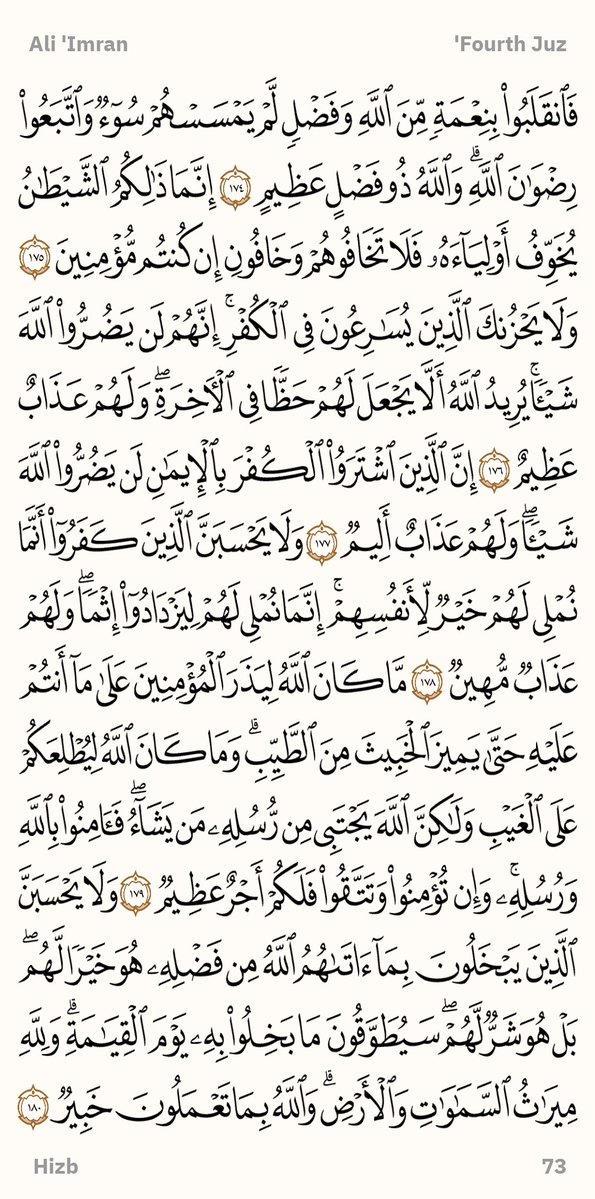 Ali 'Imran 'Fourth Juz
فَٱنقَلَبُوا۟ بِنِعْمَةٍ مِّنَ ٱللَّهِ وَفَضْلٍ لَّمْ يَمْسَسْهُمْ سُوٓءٌ وَٱتَّبَعُوا۟
رِضْوَٰنَ ٱللَّهِ ۗ وَٱللَّهُ ذُو فَضْلٍ عَظِيمٍ ١٧٤ إِنَّمَا ذَٰلِكُمُ ٱلشَّيْطَٰنُ
يُخَوِّفُ أَوْلِيَآءَهُۥ فَلَا تَخَافُوهُمْ وَخَافُونِ إِن كُنتُم مُّؤْمِنِينَ ١٧٥
وَلَا يَحْزُنكَ ٱلَّذِينَ يُسَٰرِعُونَ فِى ٱلْكُفْرِ ۚ إِنَّهُمْ لَن يَضُرُّوا۟ ٱللَّهَ
شَيْـًٔا ۗ يُرِيدُ ٱللَّهُ أَلَّا يَجْعَلَ لَهُمْ حَظًّا فِى ٱلْـَٔاخِرَةِ ۖ وَلَهُمْ عَذَابٌ
عَظِيمٌ ١٧٦ إِنَّ ٱلَّذِينَ ٱشْتَرَوُا۟ ٱلْكُفْرَ بِٱلْإِيمَٰنِ لَن يَضُرُّوا۟ ٱللَّهَ
شَيْـًٔا ۖ وَلَهُمْ عَذَابٌ أَلِيمٌ ١٧٧ وَلَا يَحْسَبَنَّ ٱلَّذِينَ كَفَرُوٓا۟ أَنَّمَا
نُمْلِى لَهُمْ خَيْرٌ لِّأَنفُسِهِمْ ۚ إِنَّمَا نُمْلِى لَهُمْ لِيَزْدَادُوٓا۟ إِثْمًا ۖ وَلَهُمْ
عَذَابٌ مُّهِينٌ ١٧٨ مَّا كَانَ ٱللَّهُ لِيَذَرَ ٱلْمُؤْمِنِينَ عَلَىٰ مَآ أَنتُمْ
عَلَيْهِ حَتَّىٰ يَمِيزَ ٱلْخَبِيثَ مِنَ ٱلطَّيِّبِ ۗ وَمَا كَانَ ٱللَّهُ لِيُطْلِعَكُمْ
عَلَى ٱلْغَيْبِ وَلَٰكِنَّ ٱللَّهَ يَجْتَبِى مِن رُّسُلِهِۦ مَن يَشَآءُ ۖ فَـَٔامِنُوا۟ بِٱللَّهِ
وَرُسُلِهِۦ ۚ وَإِن تُؤْمِنُوا۟ وَتَتَّقُوا۟ فَلَكُمْ أَجْرٌ عَظِيمٌ ١٧٩ وَلَا يَحْسَبَنَّ
ٱلَّذِينَ يَبْخَلُونَ بِمَآ ءَاتَىٰهُمُ ٱللَّهُ مِن فَضْلِهِۦ هُوَ خَيْرًا لَّهُم ۖ
بَلْ هُوَ شَرٌّ لَّهُمْ ۖ سَيُطَوَّقُونَ مَا بَخِلُوا۟ بِهِۦ يَوْمَ ٱلْقِيَٰمَةِ ۗ وَلِلَّهِ
مِيرَٰثُ ٱلسَّمَٰوَٰتِ وَٱلْأَرْضِ ۗ وَٱللَّهُ بِمَا تَعْمَلُونَ خَبِيرٌ ١٨٠
Hizb 73